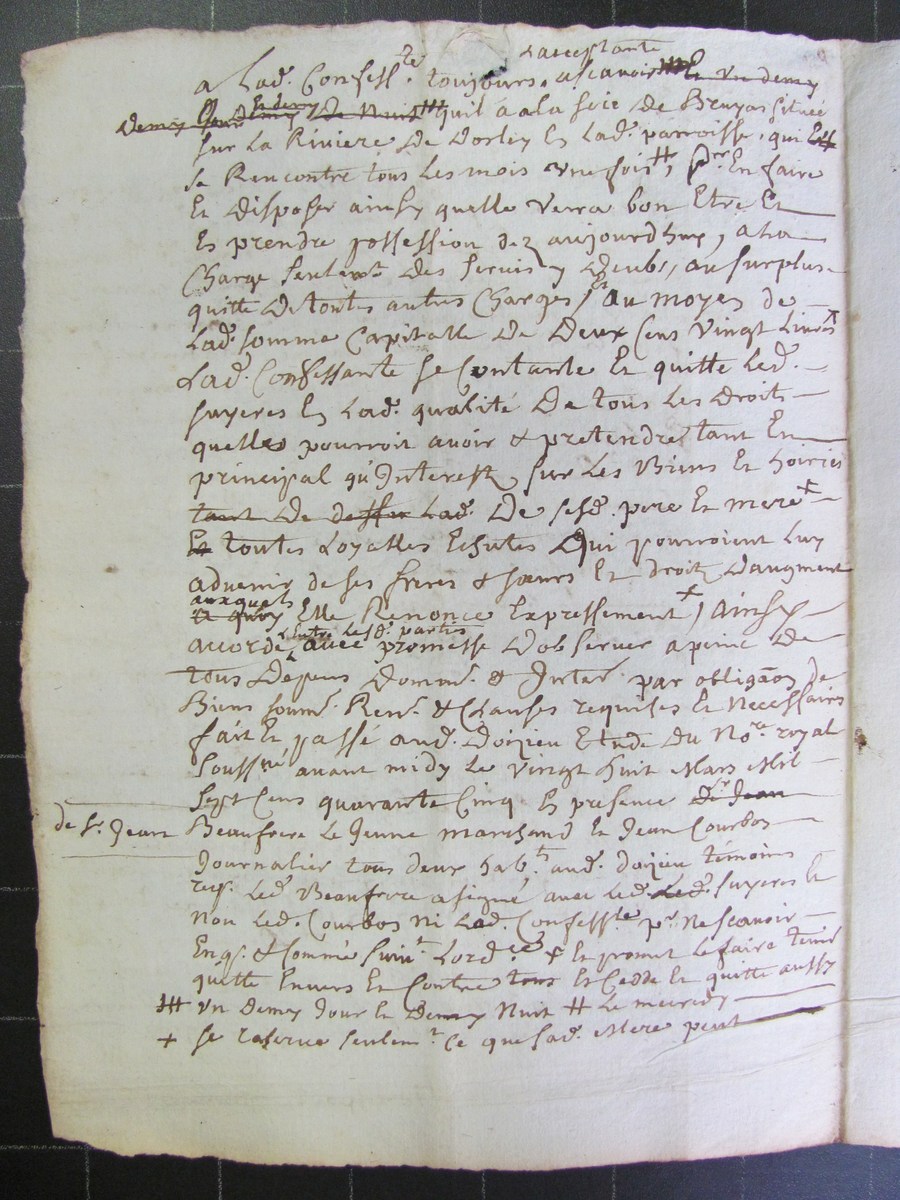 & acceptante
a Lad. Confess.te toujours, ascavoir ### Et un demy
demy jour Et demy de Nuit ### quil a a la Scie de Bruyas Située
Sur La Riviere De Dorley En Lad. parroisse, qui Est
Se Rencontre tous Les mois une fois #, pr. En faire
Et Disposer ainsy quelle verra bon Etre Et
En prendre possession dez aujourdhuy, a la
Charge Seulemt. Des Servis y Deubs, au surplus
quitte De toutes autres Charges, Et au moyen de
Lad. somme Capitalle De Deux Cens Vingt Livres
Lad. Confessante Se Contante Et quitte Led.
Suyeres En Lad. qualité De tous Les Droits
quelle pourroit avoir & pretendre tant En
principal qu'Interest Sur Les Biens Et hoiries
tant De Lad. De sesd. pere Et mere +
Et toutes Loyalles Echutes Qui pourroient Luy
advenir de Ses freres & sœurs Et Droit Daugment
auxquels
a quoy Elle Renonce Expressement +, ainsy
Entre Lesd. partis
accordé avec promesse D'observer a peine De
tous Depens Domm. & Inter. par obligaon. De
Biens soum. Renon. & Clauses requises Et Necessaires
fait Et passé aud. Doizieu Etude Du Nore. royal
Soussné avant midy Le vingt huit Mars Mil
Sept Cens quarante Cinq En presence de Sr. Jean
de Sr. Jean Beaufrere Le Jeune marchand Et Jean Courbon
Journalier tous deux habts. aud. doizieu témoins
req. Led. Beaufrere a signé avec Led. Led. Suyeres Et
Non Led. Courbon Ni Lad. Confesste. pr. Ne Scavoir
Enq. & Sommé Suivt. Lord.ce + Et promet Le faire tenir
quitte Envers Et Contre tous Et Cedde Et quitte aussy
### un Demy Jour Et Demy Nuit # Le mecredy
+ Se reserve seulemt. Ce que Sad. Mere peut